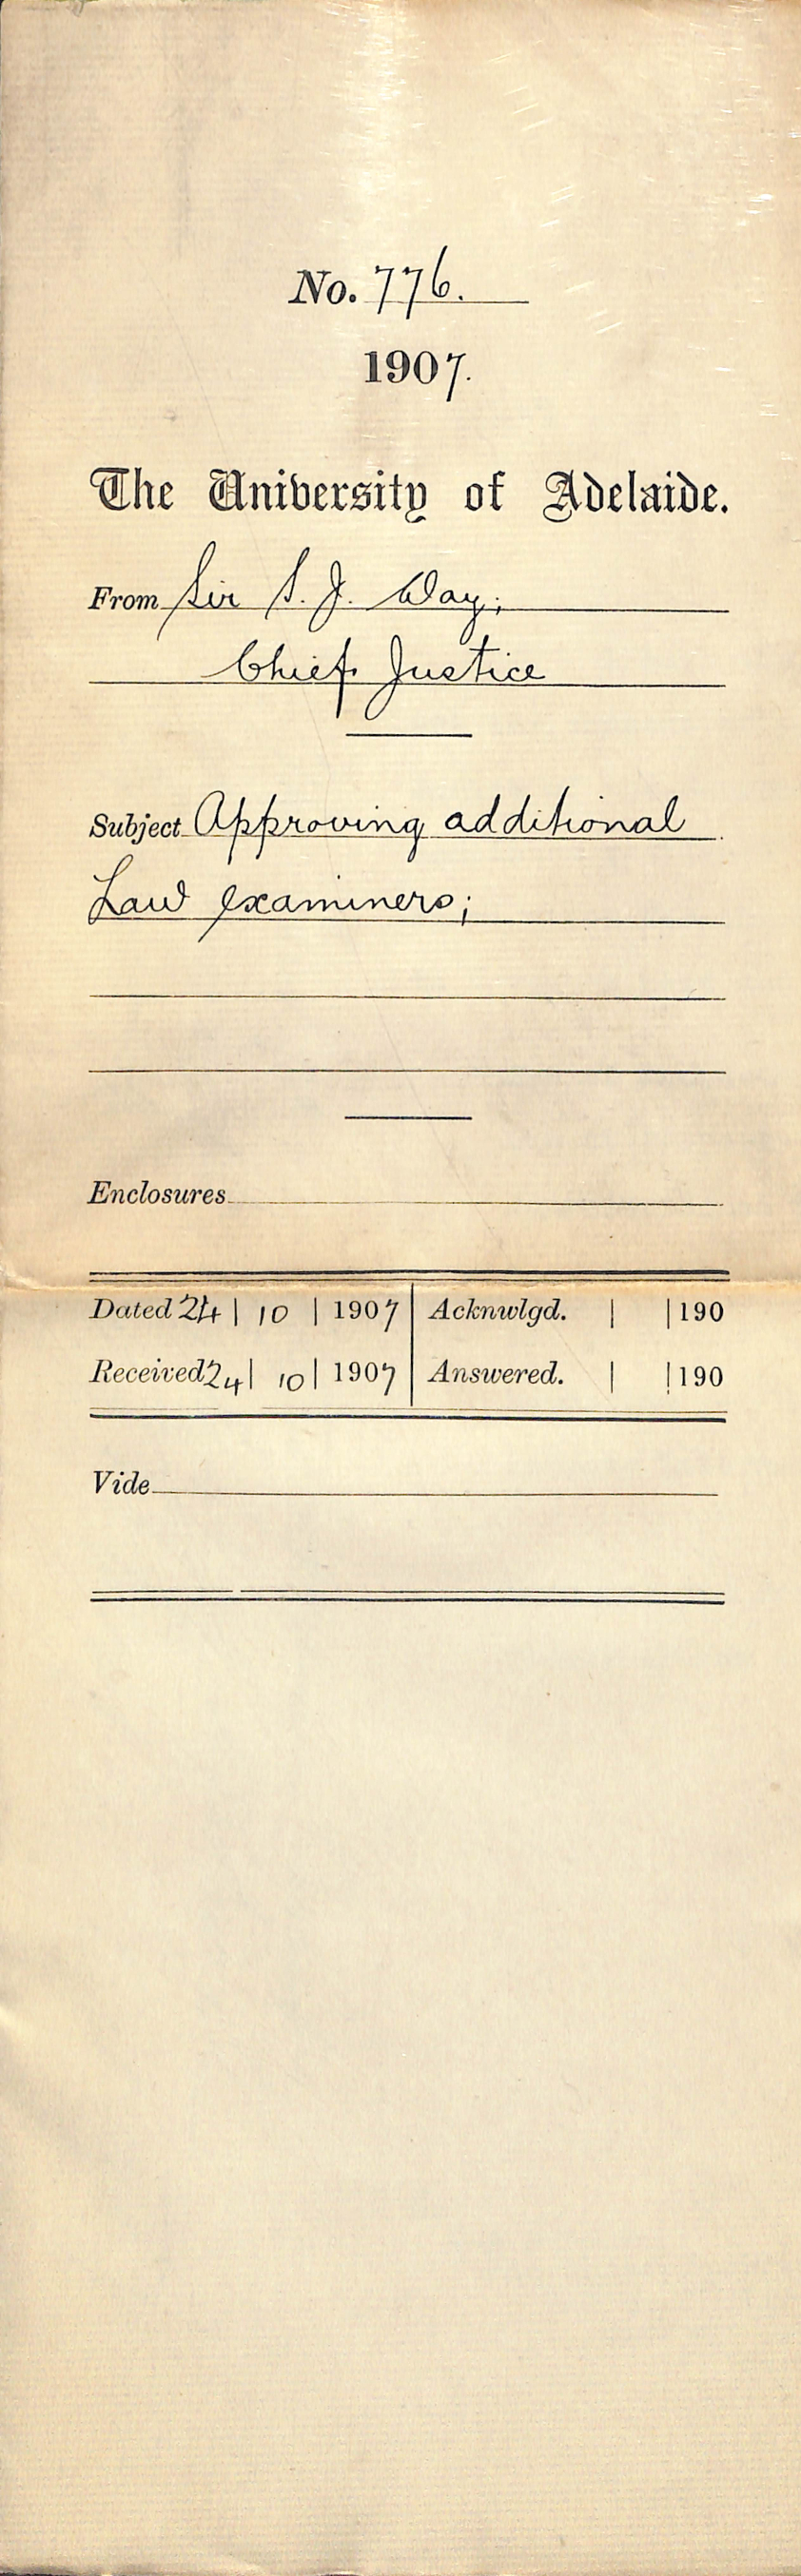 No. 776.
1907.
The University of Adelaide.
From Sir S. J. Way;
Chief Justice
Subject Approving additional
Law examiners;
Enclosures
Dated 24 | 10 | 1907 Acknwlgd. | | 190
Received 24 | 10 | 1907 Answered. | | 190
Vide